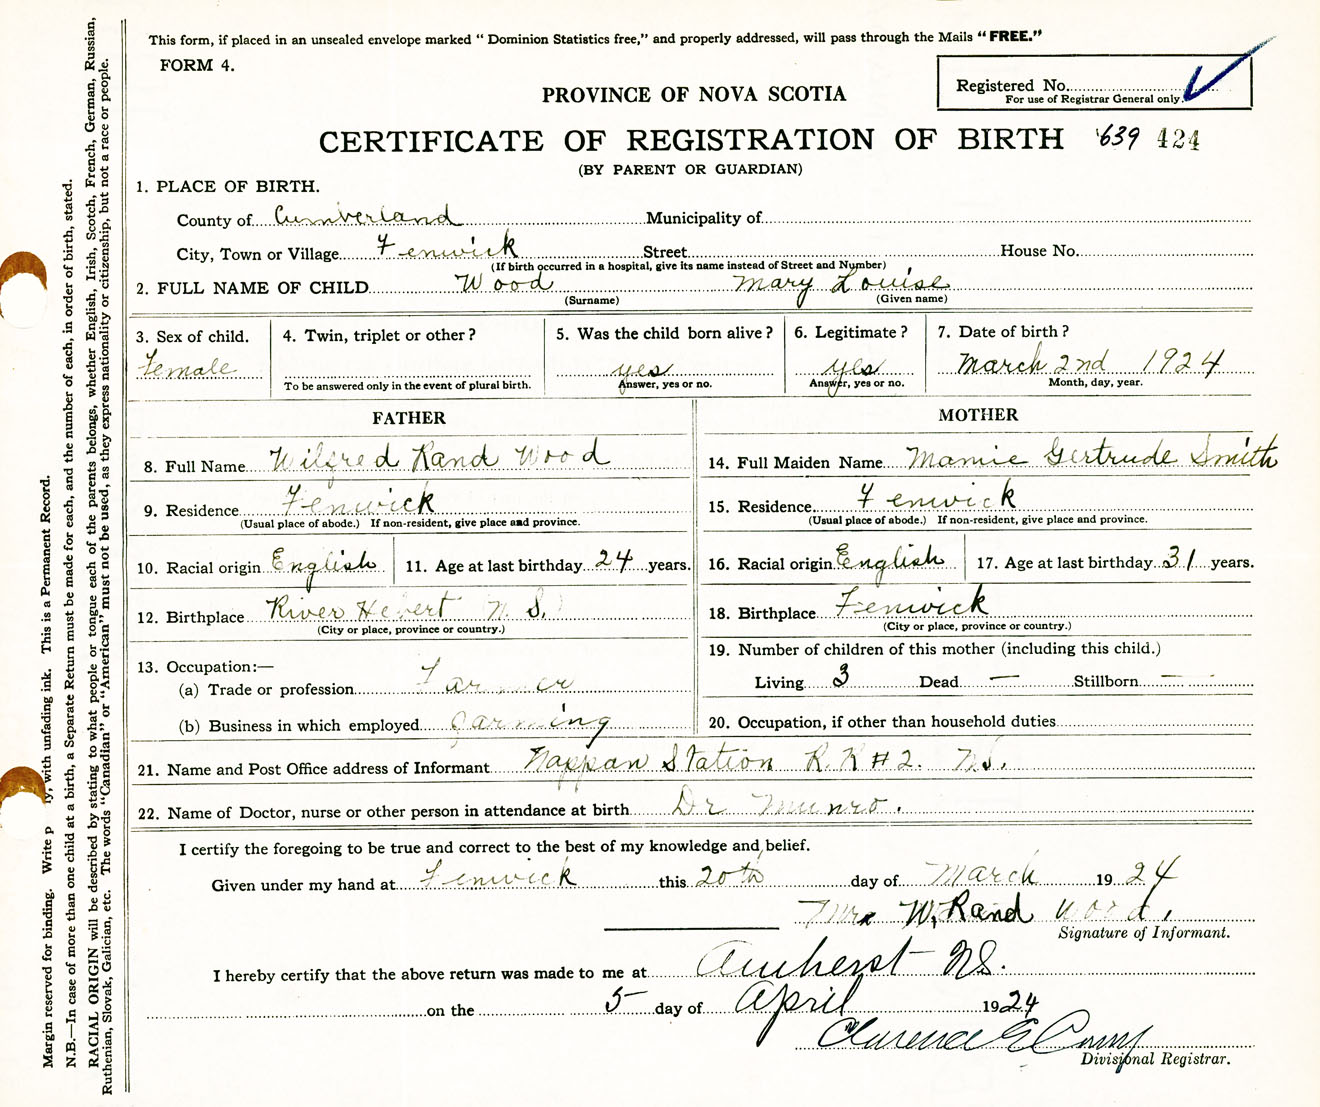 This form, if placed in an unsealed envelope marked “ Dominion Statistics free,” and properly addressed, will pass through the Mails “FREE.”
FORM 4.
Registered No.
For use of Registrar General only.
PROVINCE OF NOVA SCOTIA
CERTIFICATE OF REGISTRATION OF BIRTH 639 424
(BY PARENT OR GUARDIAN)
1. PLACE OF BIRTH.
County of Cumberland Municipality of
City, Town or Village Fenwick Street House No.
(If birth occurred in a hospital, give its name instead of Street and Number)
2. FULL NAME OF CHILD Wood Mary Louise
(Surname) (Given name)
3. Sex of child. 4. Twin, triplet or other? 5. Was the child born alive? 6. Legitimate? 7. Date of birth?
Female yes yes March 2nd 1924
To be answered only in the event of plural birth. Answer, yes or no. Answer, yes or no. Month, day, year.
FATHER
8. Full Name Wilfred Rand Wood
9. Residence Fenwick
(Usual place of abode.) If non-resident, give place and province.
10. Racial origin English 11. Age at last birthday 24 years.
12. Birthplace River Hebert N S.
(City or place, province or country.)
13. Occupation:—
(a) Trade or profession Farmer
(b) Business in which employed Farming
MOTHER
14. Full Maiden Name Mamie Gertrude Smith
15. Residence Fenwick
(Usual place of abode.) If non-resident, give place and province.
16. Racial origin English 17. Age at last birthday 31 years.
18. Birthplace Fenwick
(City or place, province or country.)
19. Number of children of this mother (including this child.)
Living 3 Dead — Stillborn —
20. Occupation, if other than household duties
21. Name and Post Office address of Informant Nappan Station R.R #2. N.S.
22. Name of Doctor, nurse or other person in attendance at birth Dr Munro.
I certify the foregoing to be true and correct to the best of my knowledge and belief.
Given under my hand at Fenwick this 20th day of March 1924
Mrs W. Rand Wood.
Signature of Informant.
I hereby certify that the above return was made to me at Amherst NS.
on the 5 day of April 1924
Clarence E
Divisional Registrar.
Margin reserved for binding. Write p ly, with unfading ink. This is a Permanent Record.
N.B.—In case of more than one child at a birth, a Separate Return must be made for each, and the number of each, in order of birth, stated.
RACIAL ORIGIN will be described by stating to what people or tongue each of the parents belongs, whether English, Irish, Scotch, French, German, Russian,
Ruthenian, Slovak, Galician, etc. The words “Canadian” or “American” must not be used, as they express nationality or citizenship, but not a race or people.